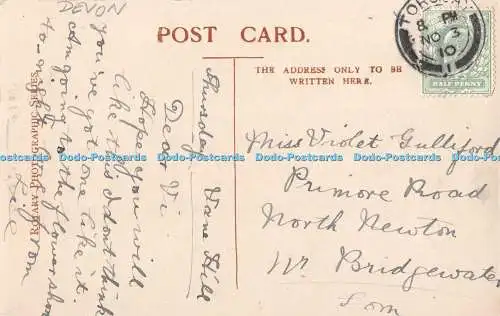 DEVON
POST CARD.
THE ADDRESS ONLY TO BE
WRITTEN HERE.
TORQUAY
8 PM
NO 3
10
HALF PENNY
Thursday Vane Hill
Dear Vi.
Hope you will
like this I don't think
you've got one like it.
Am going to the flower show
to-night.
from
Miss Violet Gulliford
Primore Road
North Newton
Nr Bridgewater
Som
ROTARY PHOTOGRAPHIC SERIES.
Dodo-Postcards Dodo-Postcards Dodo-Postcards Dodo-Postcards Dodo-Postcards Dodo-Postcards